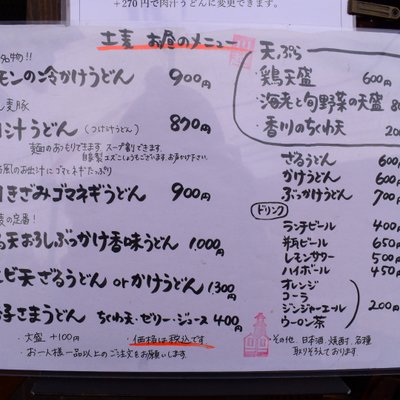 +270円で肉汁うどんに変更できます。
土麦 お昼のメニュー
名物!!
モンの冷かけうどん 900円
麦豚
汁うどん (つけ汁うどん) 870円
麺のあつもりできます。スープ割りできます。
自家製ユズこしょうもございます。お声かけ下さい。
風のお出汁にゴマとネギたっぷり
きざみゴマネギうどん 900円
の定番!
天おろしぶっかけ香味うどん 1,000円
ビ天ざるうどん orかけうどん 1,300円
さまうどん ちくわ天・ゼリー・ジュース 400円
・大盛 +100円 ・価格は税込です。
・お一人様一品以上のご注文をお願いします。
天ぷら
・鶏天盛 600円
・海老と旬野菜の天盛 80
・香川のちくわ天 20
ざるうどん 600
かけうどん 600
ぶっかけうどん 70
ドリンク
ランチビール 400
瓶ビール 650
レモンサワー 500
ハイボール 450
オレンジ
コーラ
ジンジャーエール
ウーロン茶
200円
・その他、日本酒、焼酎、各種
取りそろえております